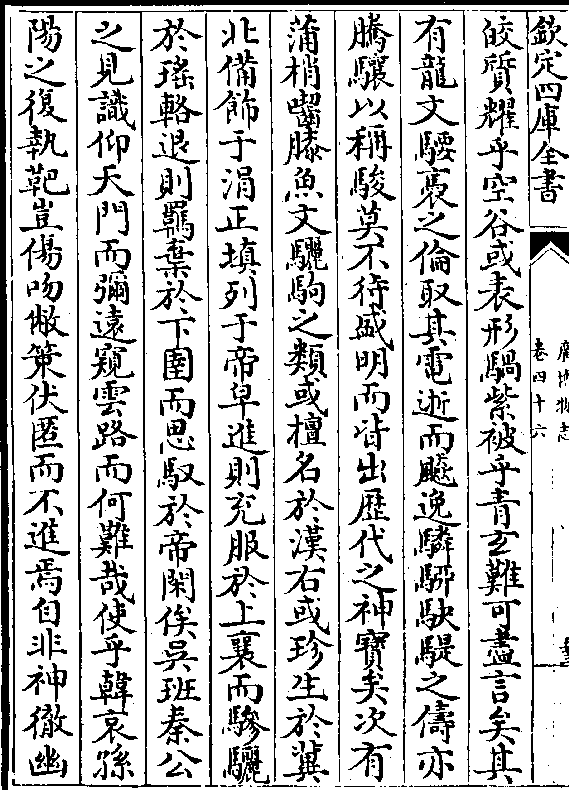 欽定四庫全書
廣博物志
卷四十六
皎質耀乎空谷或表形騧紫被乎青玄難可盡言矣其
有龍文騕褭之倫取其電逝而飈逸驎駵駃騠之儔亦
騰驤以稱駿莫不待盛明而皆出歷代之神寶矣次有
蒲梢齧膝魚文驪駒之類或擅名於漢右或珍生於冀
北備飾于涓正填列于帝皁進則充服於上襄而驂驪
於瑤輅退則羈棄於下圉而思馭於帝閑俟吳班秦公
之見識仰天門而彌遠窺雲路而何難哉使乎韓哀孫
陽之復執靶豈傷吻敝策伏匿而不進焉自非神徹幽